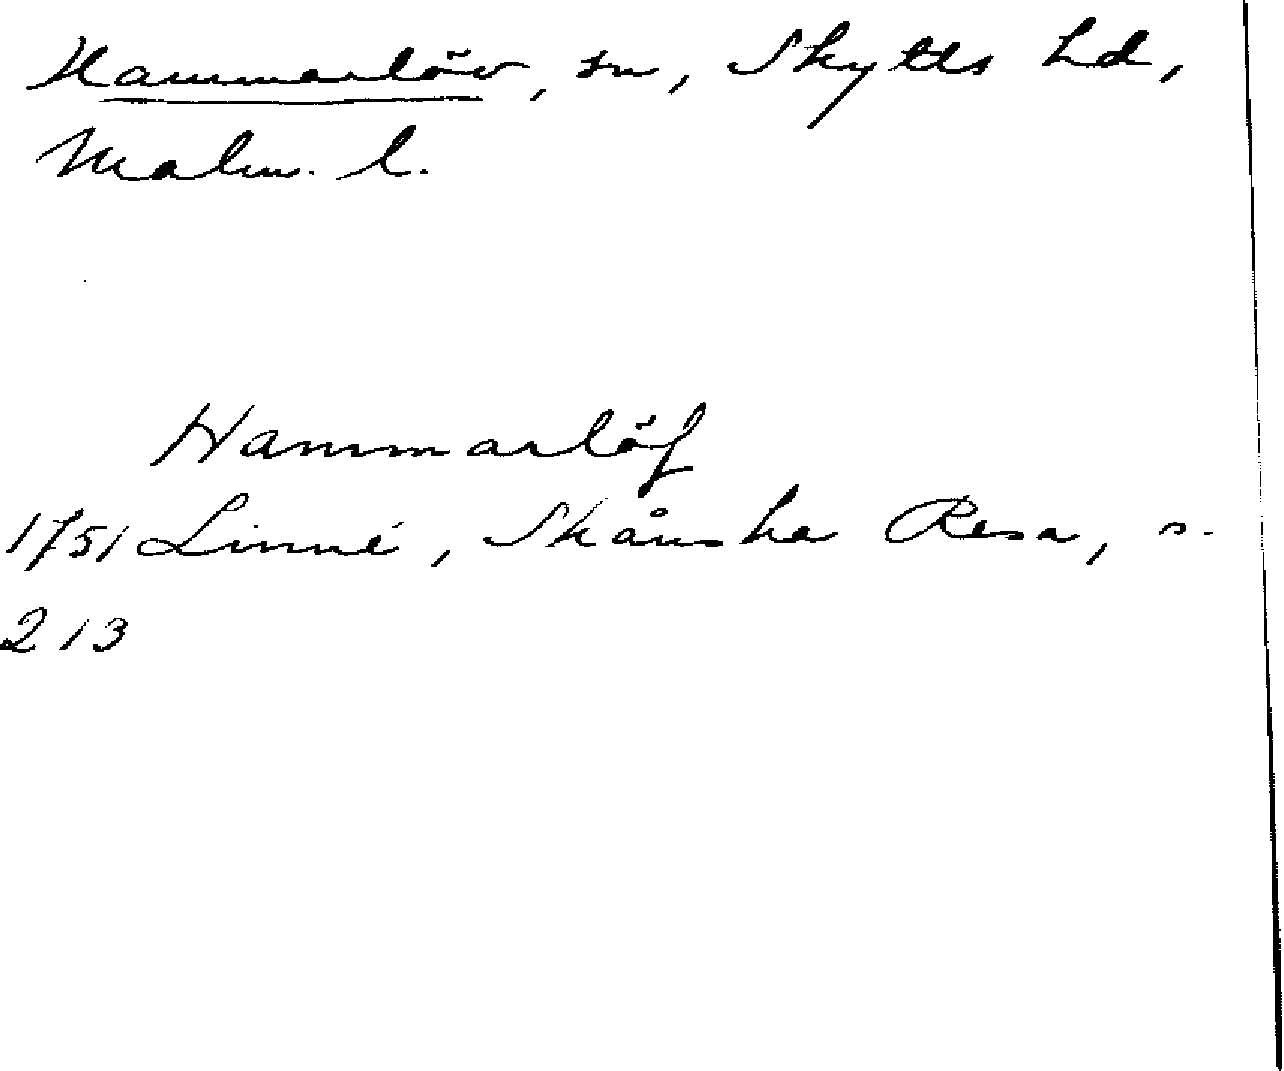 Hammarlöv, sn, Skytts hd,
Malm. l.
Hammarlöf
1751 Linné, Skånska Resa, s.
213